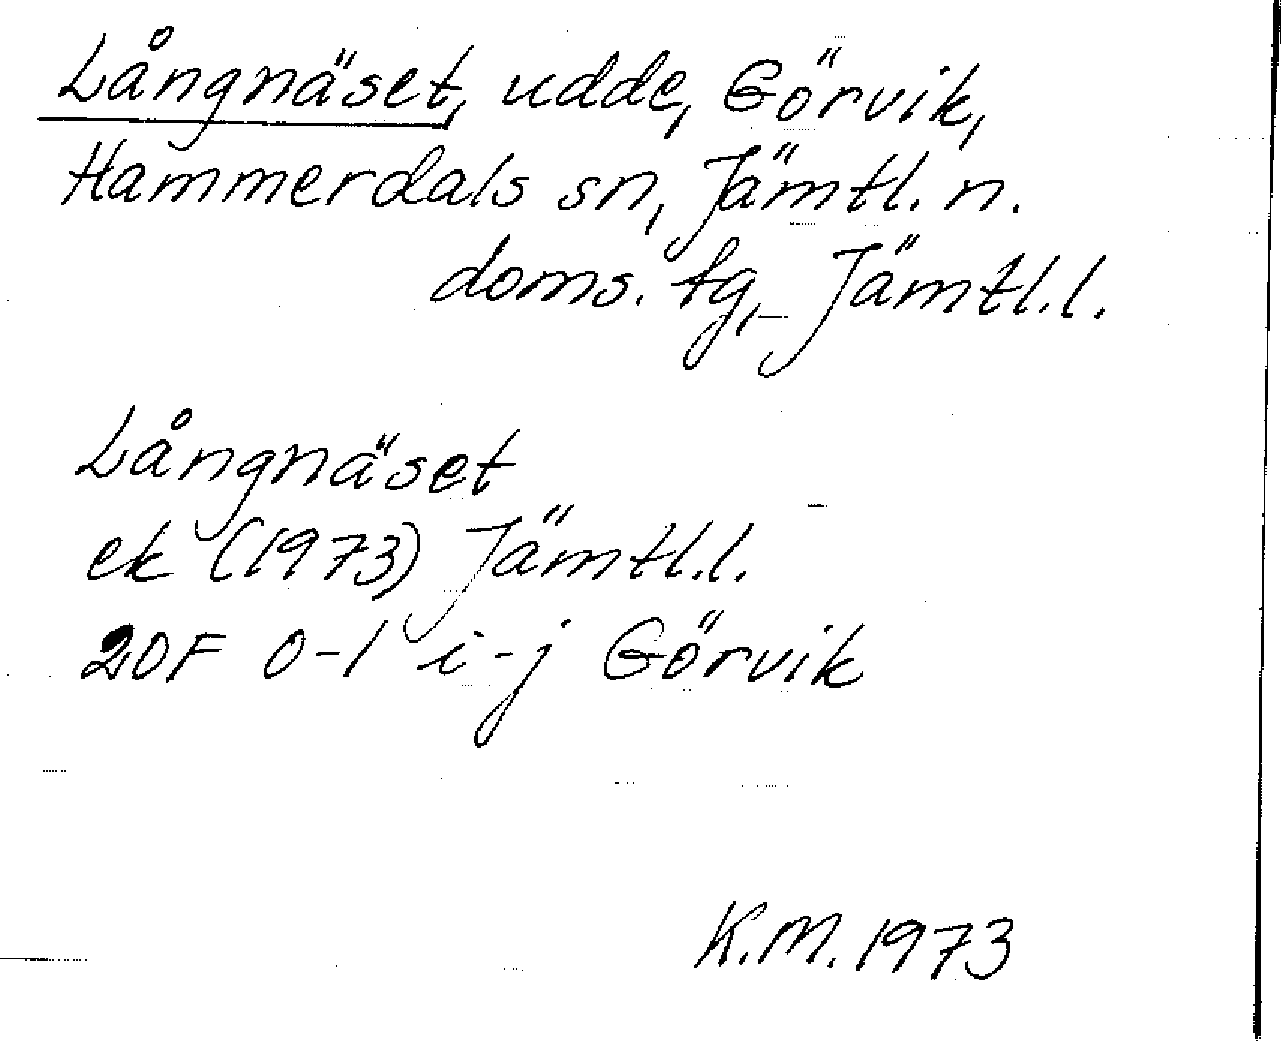 Långnäset, udde, Görvik,
Hammerdals sn, Jämtl. n.
doms. tg, Jämtl.l.
Långnäset
ek (1973) Jämtl.l.
20F 0-1 i-j Görvik
K.M. 1973